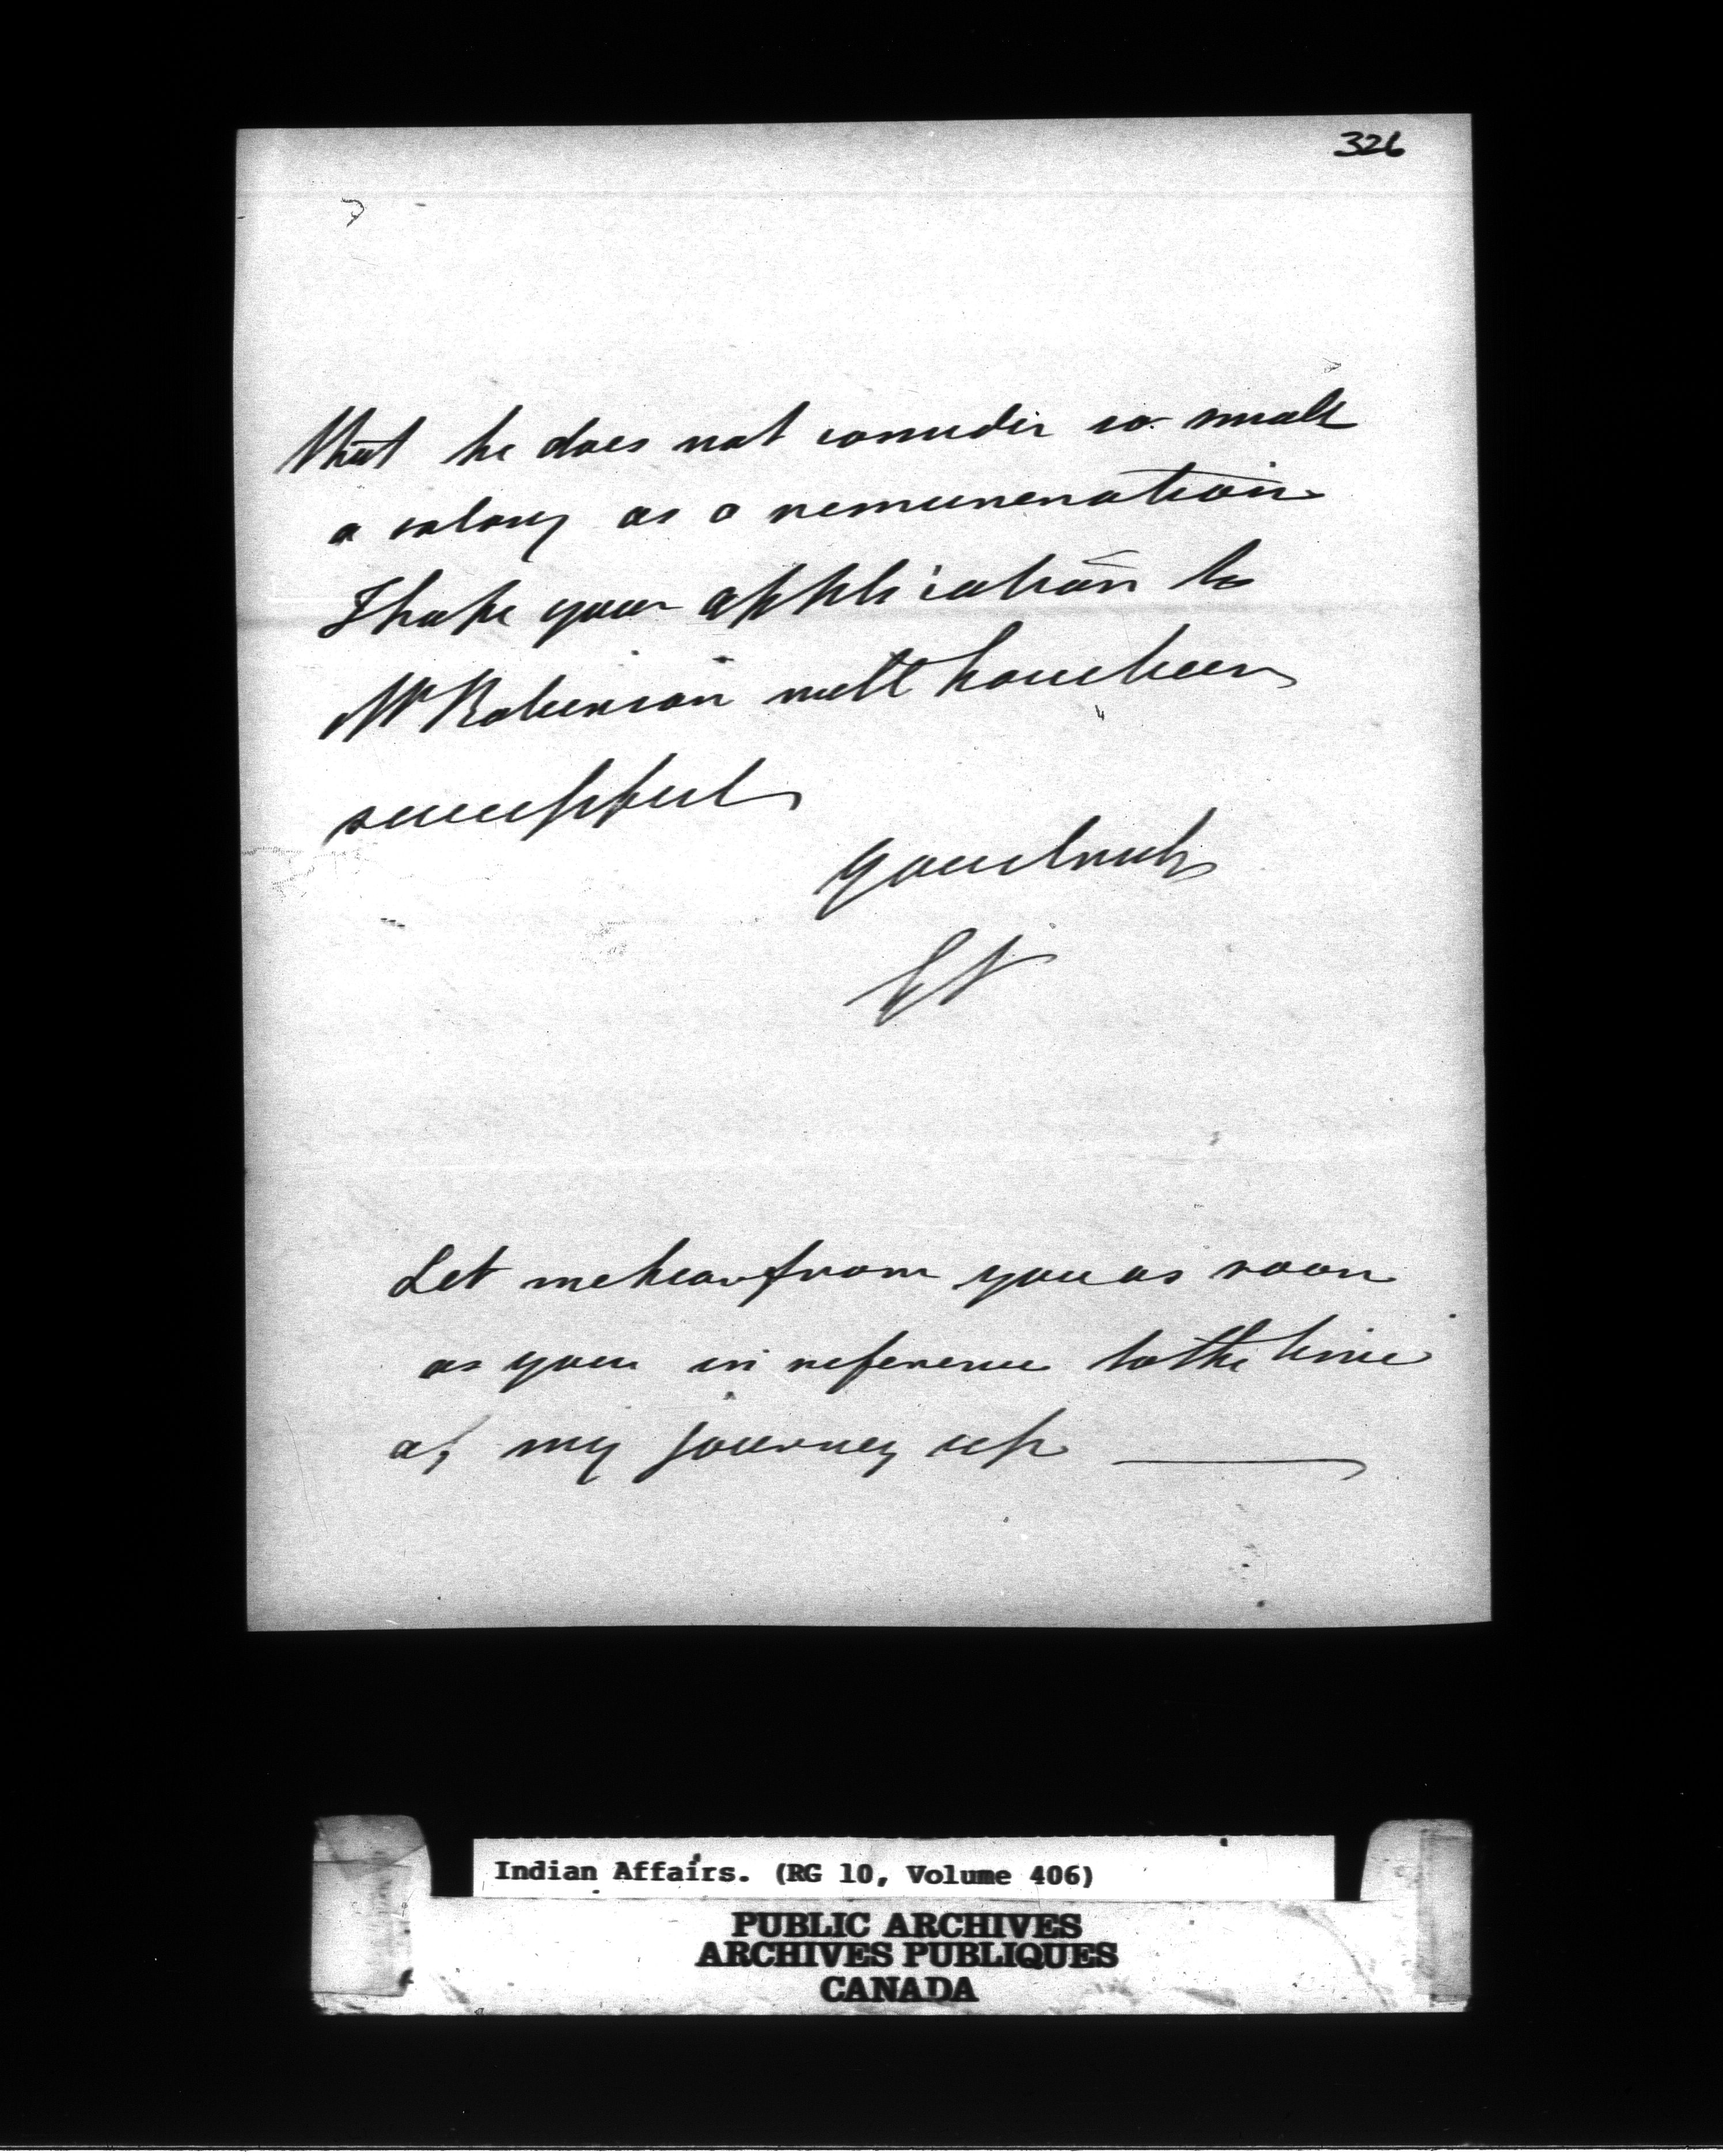 326
that he does not consider so small
a salary as a remuneration
I hope your application to
Mr Robinson will have been
successful
Yours truly
Let me hear from you as soon
as you in reference to the time
of my journey up
Indian Affairs. (RG 10, Volume 406)
PUBLIC ARCHIVES
ARCHIVES PUBLIQUES
CANADA